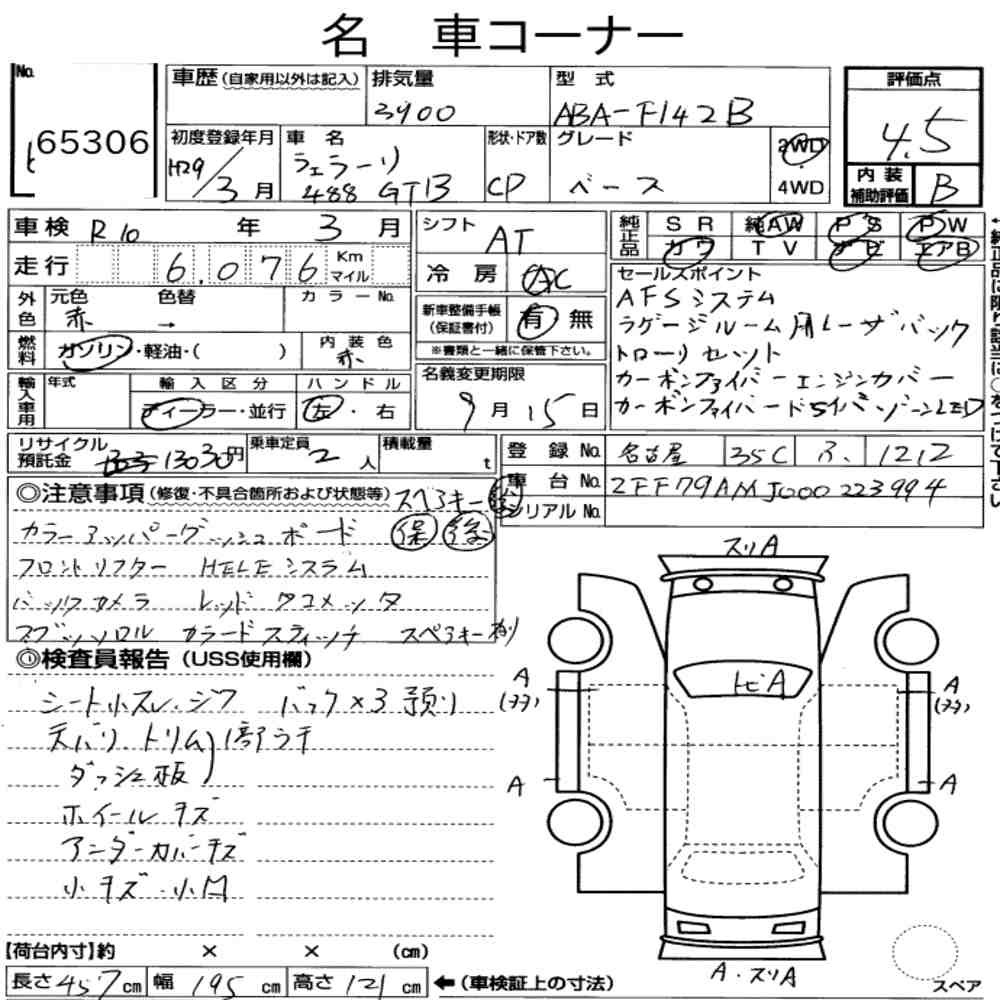 名 車コーナー
No.
65306
車歴 (自家用以外は記入)
排気量
3900
型式
ABA-F142B
評価点
4.5
初度登録年月
H29/3月
車名
フェラーリ
488 GTB
形状・ドア数
CP
グレード
ベース
2WD
4WD
内装
補助評価
B
車検 R10 年 3 月
走行 6,076 Km マイル
シフト
AT
冷房 AC
純正品
SR 純AW PS PW
カワ TV ナビ エアB
外色
元色 色替 カラーNo.
赤 →
新車整備手帳
(保証書付)
有 無
※書類と一緒に保管下さい。
セールスポイント
AFSシステム
ラゲージルーム用レーザバック
トローリセット
カーボンファイバーエンジンカバー
カーボンファイバードライバーゾーンLED
燃料
ガソリン・軽油・( )
内装色
赤
輸入車用
年式
輸入区分
ディーラー・並行
ハンドル
左・右
名義変更期限
9月15日
リサイクル
預託金
13030円
乗車定員
2人
積載量
t
登録No. 名古屋 35C ふ 1212
車台No. ZFF79AMJ000223994
シリアルNo.
◎注意事項 (修復・不具合箇所および状態等) スペアキー
カラーアッパーダッシュボード 保 後
フロントリフター HELEシステム
バックカメラ レッドタコメータ
マフッソロル カラードスティッチ スペアキー
◎検査員報告 (USS使用欄)
シート小スレ・シワ バック×3預り
天バリ・トリム 1部ラチ
ダッシュ板
ホイールキズ
アンダーカバーキズ
小キズ・小凹
スリA
トビA
A
A
A
A
A・スリA
スペア
【荷台内寸】約 × × (cm)
長さ457cm 幅195cm 高さ121cm ←(車検証上の寸法)